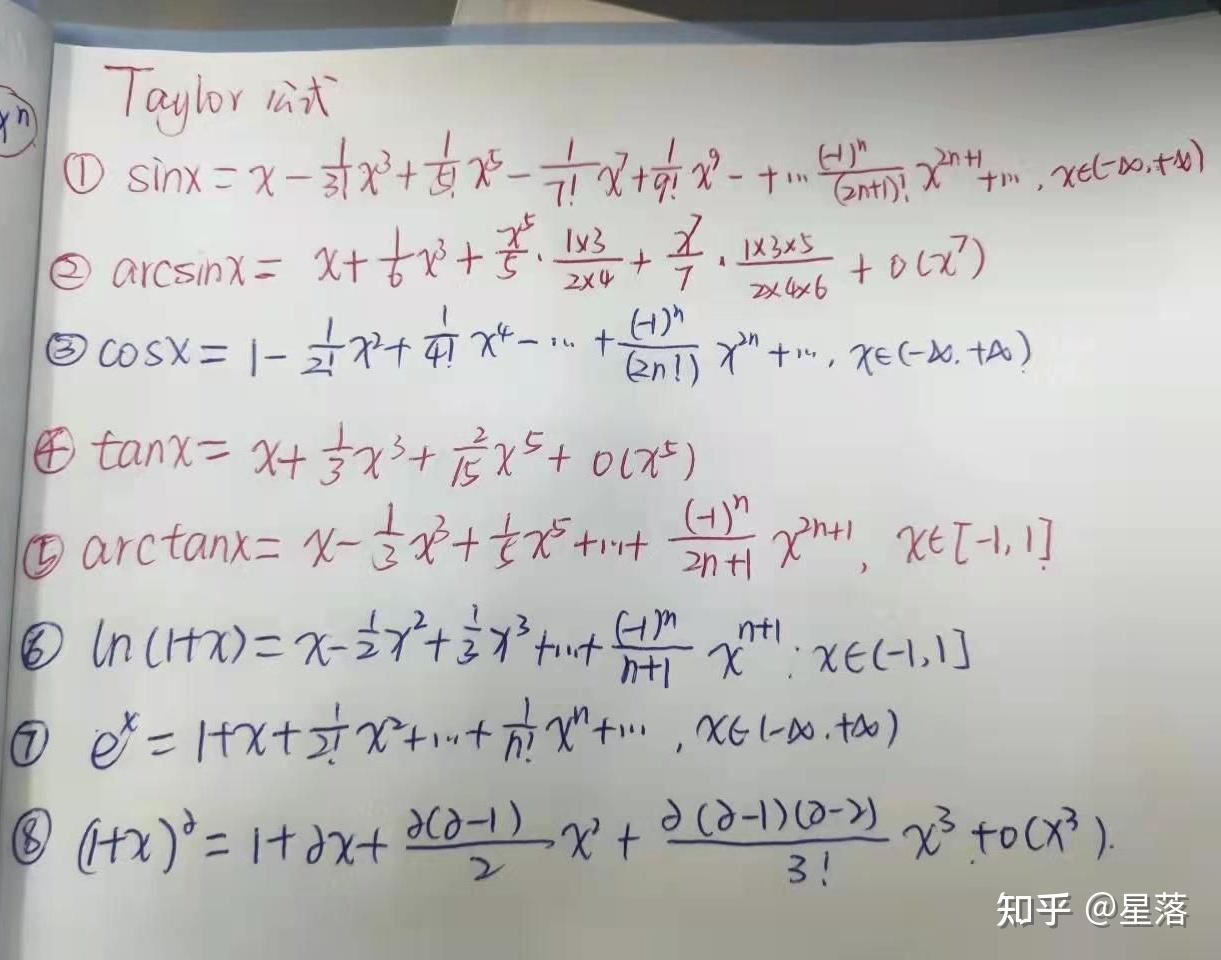 xⁿ
Taylor 公式
① sinx = x - 1/3! x³ + 1/5! x⁵ - 1/7! x⁷ + 1/9! x⁹ - + ... (-1)ⁿ/(2n+1)! x²ⁿ⁺¹ + ... , x∈(-∞,+∞)
② arcsinx = x + 1/6 x³ + x⁵/5 · 1×3/2×4 + x⁷/7 · 1×3×5/2×4×6 + o(x⁷)
③ cosx = 1 - 1/2! x² + 1/4! x⁴ - ... + (-1)ⁿ/(2n!) x²ⁿ + ... , x∈(-∞.+∞)
④ tanx = x + 1/3 x³ + 2/15 x⁵ + o(x⁵)
⑤ arctanx = x - 1/3 x³ + 1/5 x⁵ + ... + (-1)ⁿ/2n+1 x²ⁿ⁺¹ , x∈[-1,1]
⑥ ln(1+x) = x - 1/2 x² + 1/3 x³ + ... + (-1)ⁿ/n+1 xⁿ⁺¹ . x∈(-1,1]
⑦ eˣ = 1 + x + 1/2! x² + ... + 1/n! xⁿ + ... , x∈(-∞.+∞)
⑧ (1+x)^∂ = 1 + ∂x + ∂(∂-1)/2 x² + ∂(∂-1)(∂-2)/3! x³ + o(x³).
知乎 @星落